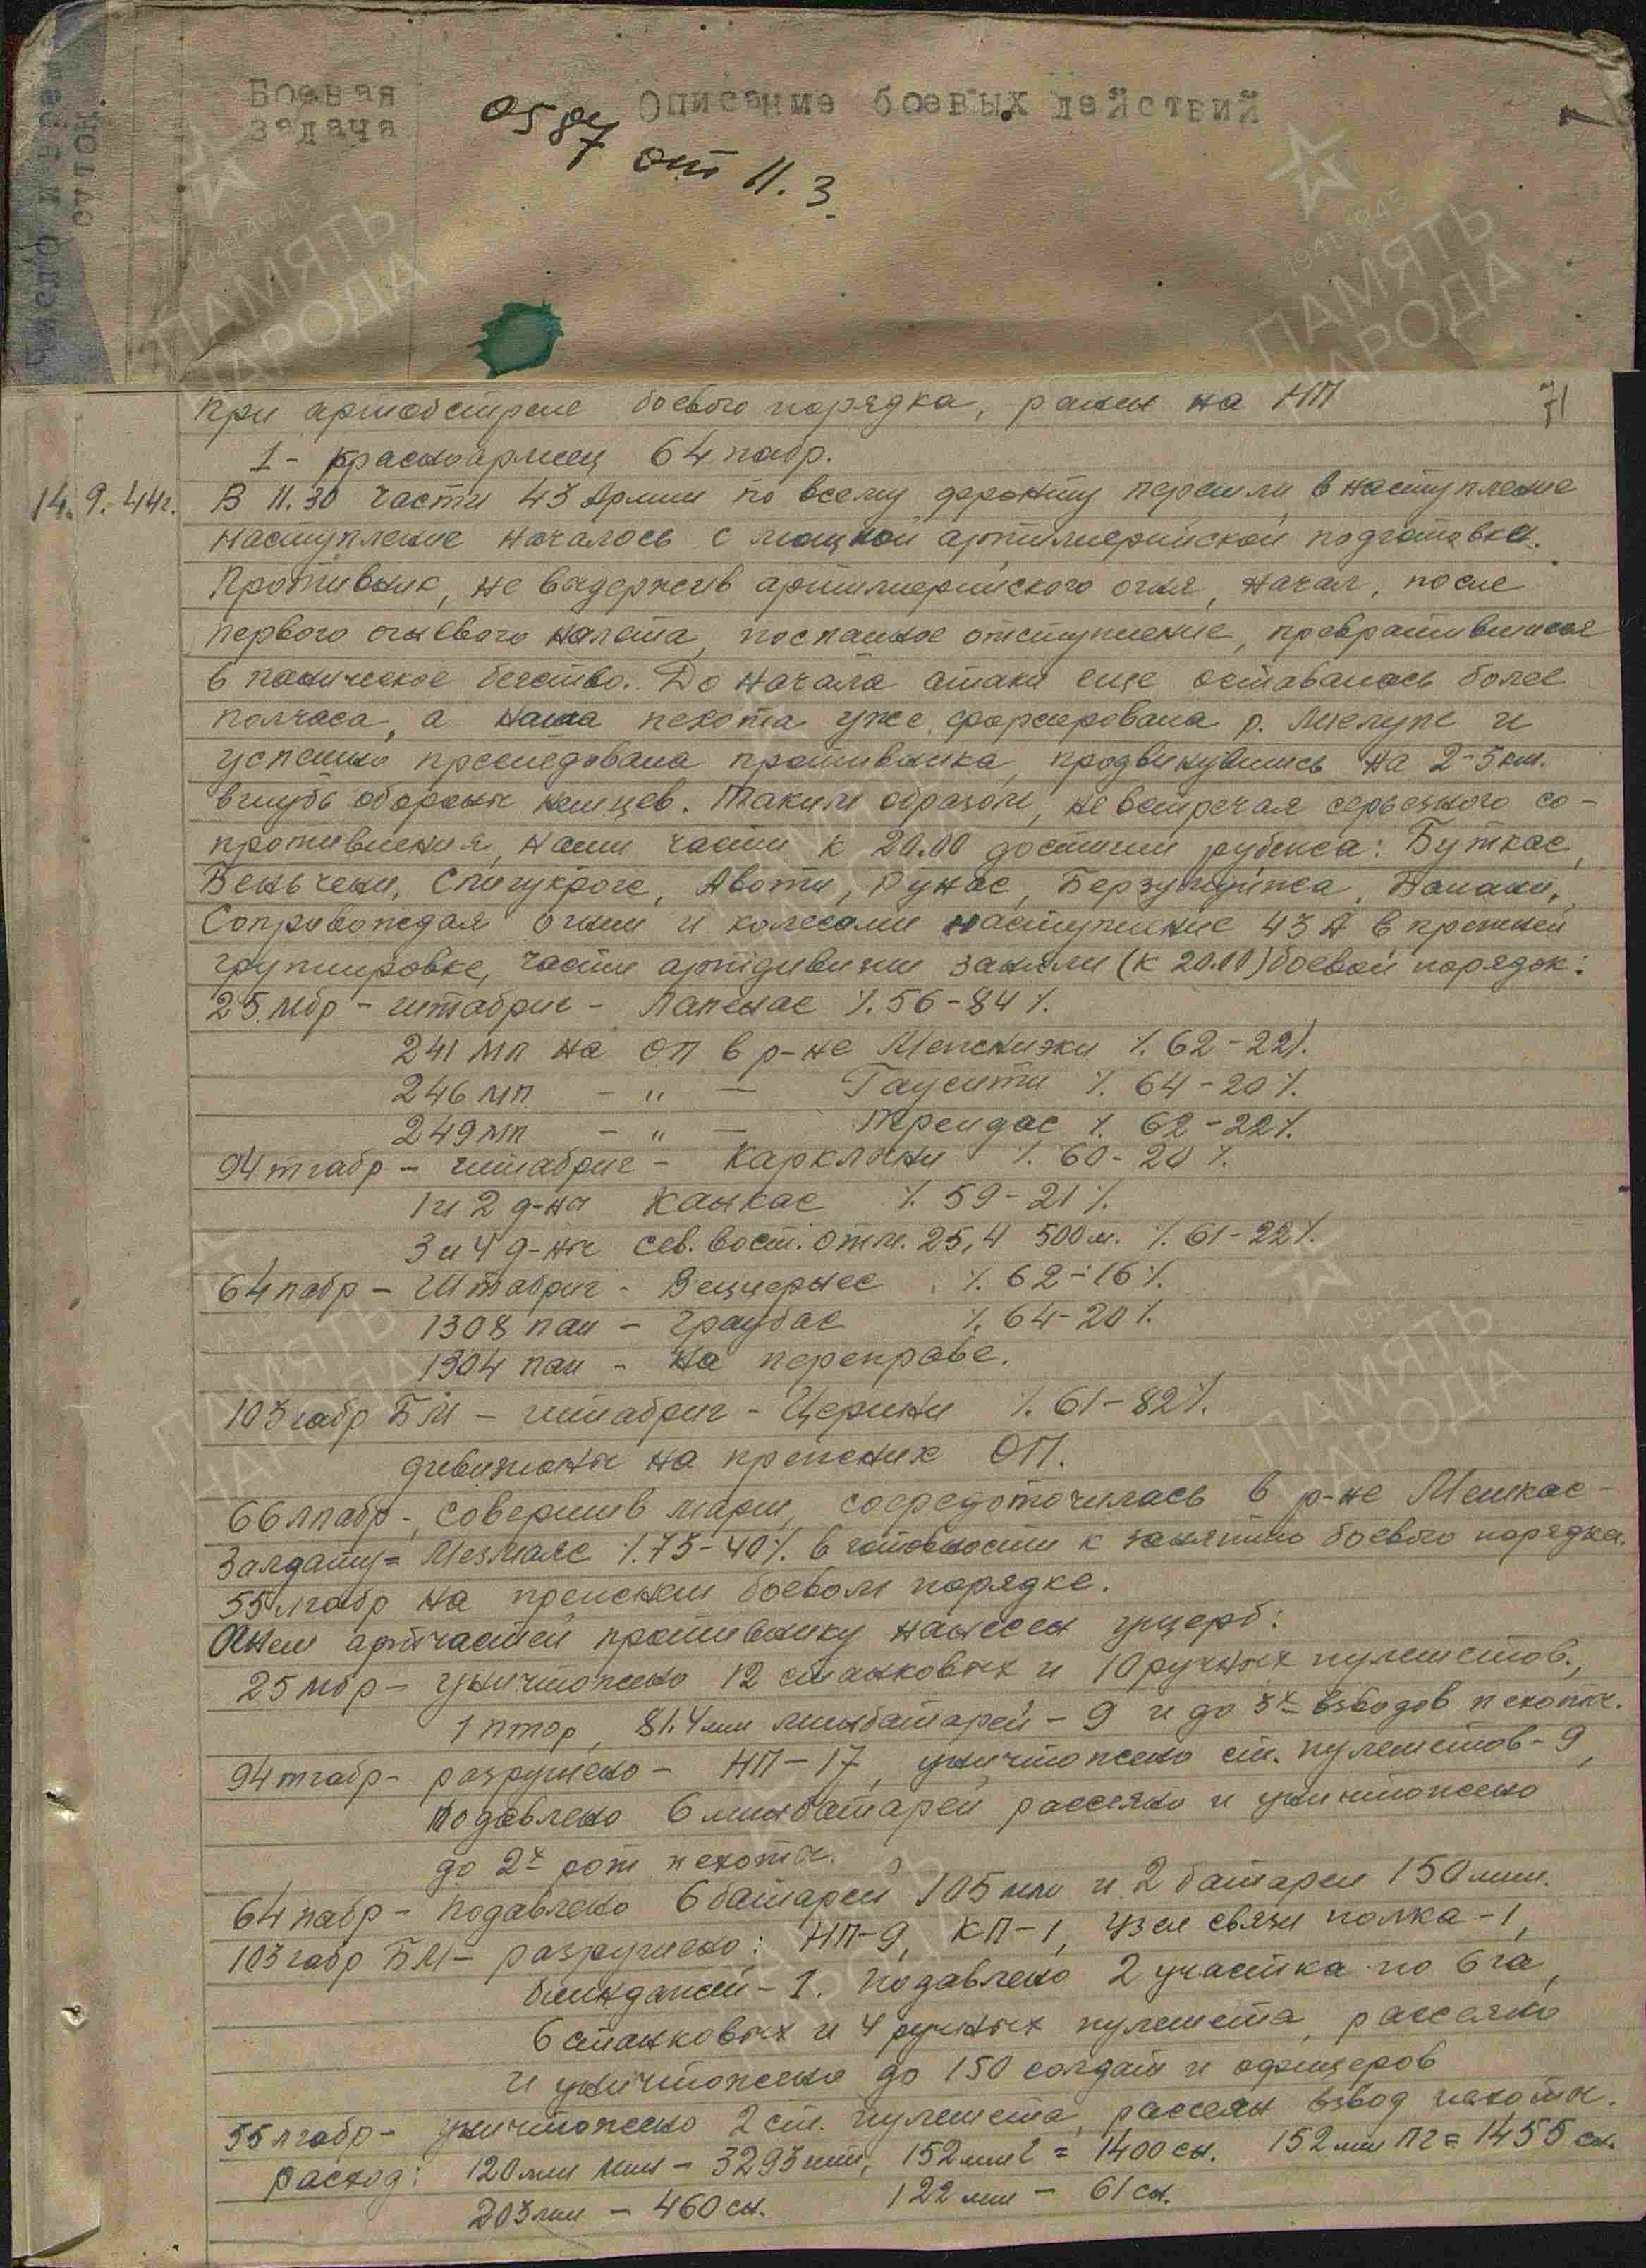 Боевая задача
Описание боевых действий
0587 от 11.3
71
при артобстреле боевого порядка, ранен на НП
1 - красноармеец 64 пабр.
14.9.44г. В 11.30 части 43 Армии по всему фронту перешли в наступление
наступление началось с мощной артиллерийской подготовки.
Противник, не выдержив артиллерийского огня, начал, после
первого огневого налета, поспешное отступление, превратившееся
в паническое бегство. До начала атаки еще оставалось более
полчаса, а наша пехота уже форсировала р. Миелупе и
успешно преследовала противника, продвинувшись на 2-3 км.
вглубь обороны немцев. Таким образом, не встречая серьезного со-
противления, наши части к 20.00 достигли рубежа: Буткас,
Беньчени, Спигукроге, Авоти, Рунас, Берзумуйжа, Балани,
Сопровождая огнем и колесами наступление 43 А в прежней
группировке, части артдивизии заняли (к 20.00) боевой порядок:
25 мбр - штабриг - Лапенас /. 56-84 /.
241 мп на ОП в р-не Межснижи /. 62-22 /.
246 мп - " - Гаусити /. 64-20 /.
249 мп - " - /. 62-22 /.
94 тгабр - штабриг - Карклини /. 60-20 /.
1 и 2 д-ны Канкас /. 59-21 /.
3 и 4 д-ны сев. вост. отм. 25,4 500 м. /. 61-22 /.
64 пабр - Штабриг - Вецчернес /. 62-16 /.
1308 пап - Граубас /. 64-20 /.
1304 пап - на переправе.
103 габр БМ - штабриг - Церини /. 61-82 /.
дивизионы на прежних ОП.
66 лпабр -, совершив марш, сосредоточилась в р-не Мешкас-
Залдату = Мезмалс /. 73-40 /. в готовности к занятию боевого порядка.
55 лгабр на прежнем боевом порядке.
Огнем артчастей противнику нанесен ущерб:
25 мбр - уничтожено 12 станковых и 10 ручных пулеметов.,
1 птор, 81.4 мм минбатарей - 9 и до 3х взводов пехоты.
94 тгабр - разрушено - НП - 17, уничтожено ст. пулеметов - 9,
подавлено 6 минбатарей рассеяно и уничтожено
до 2х рот пехоты.
64 пабр - подавлено 6 батарей 105 мм и 2 батареи 150 мм.
103 габр БМ - разрушено: НП-9, КП-1, узел связи полка - 1,
блиндажей - 1. Подавлено 2 участка по 6 га,
6 станковых и 4 ручных пулемета, рассеяно
и уничтожено до 150 солдат и офицеров
55 лгабр - уничтожено 2 ст. пулемета, рассеян взвод пехоты.
Расход: 120 мм мин - 3293 шт, 152 мм г = 1400 сн. 152 мм ПГ = 1455 сн.
203 мм - 460 сн. 122 мм - 61 сн.
ПАМЯТЬ НАРОДА
1941-1945